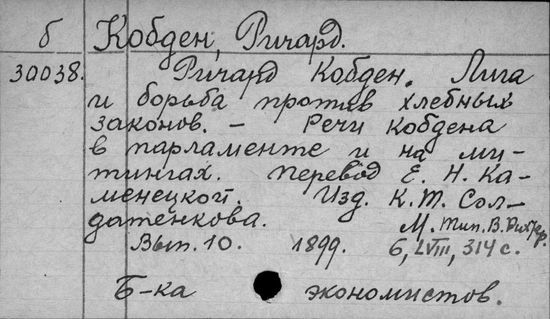 б Кобден, Ричард.
30038. Ричард Кобден. Лига
и борьба против хлебных
законов. – Речи Кобдена
в парламенте и на ми-
тингах. Перевод Е. Н. Ка-
менецкой. Изд. К. Т. Сол-
датенкова. М. Тип. В. Рихтер.
Вып. 10. 1899. 6, LVIII, 314 с.
Б-ка экономистов.